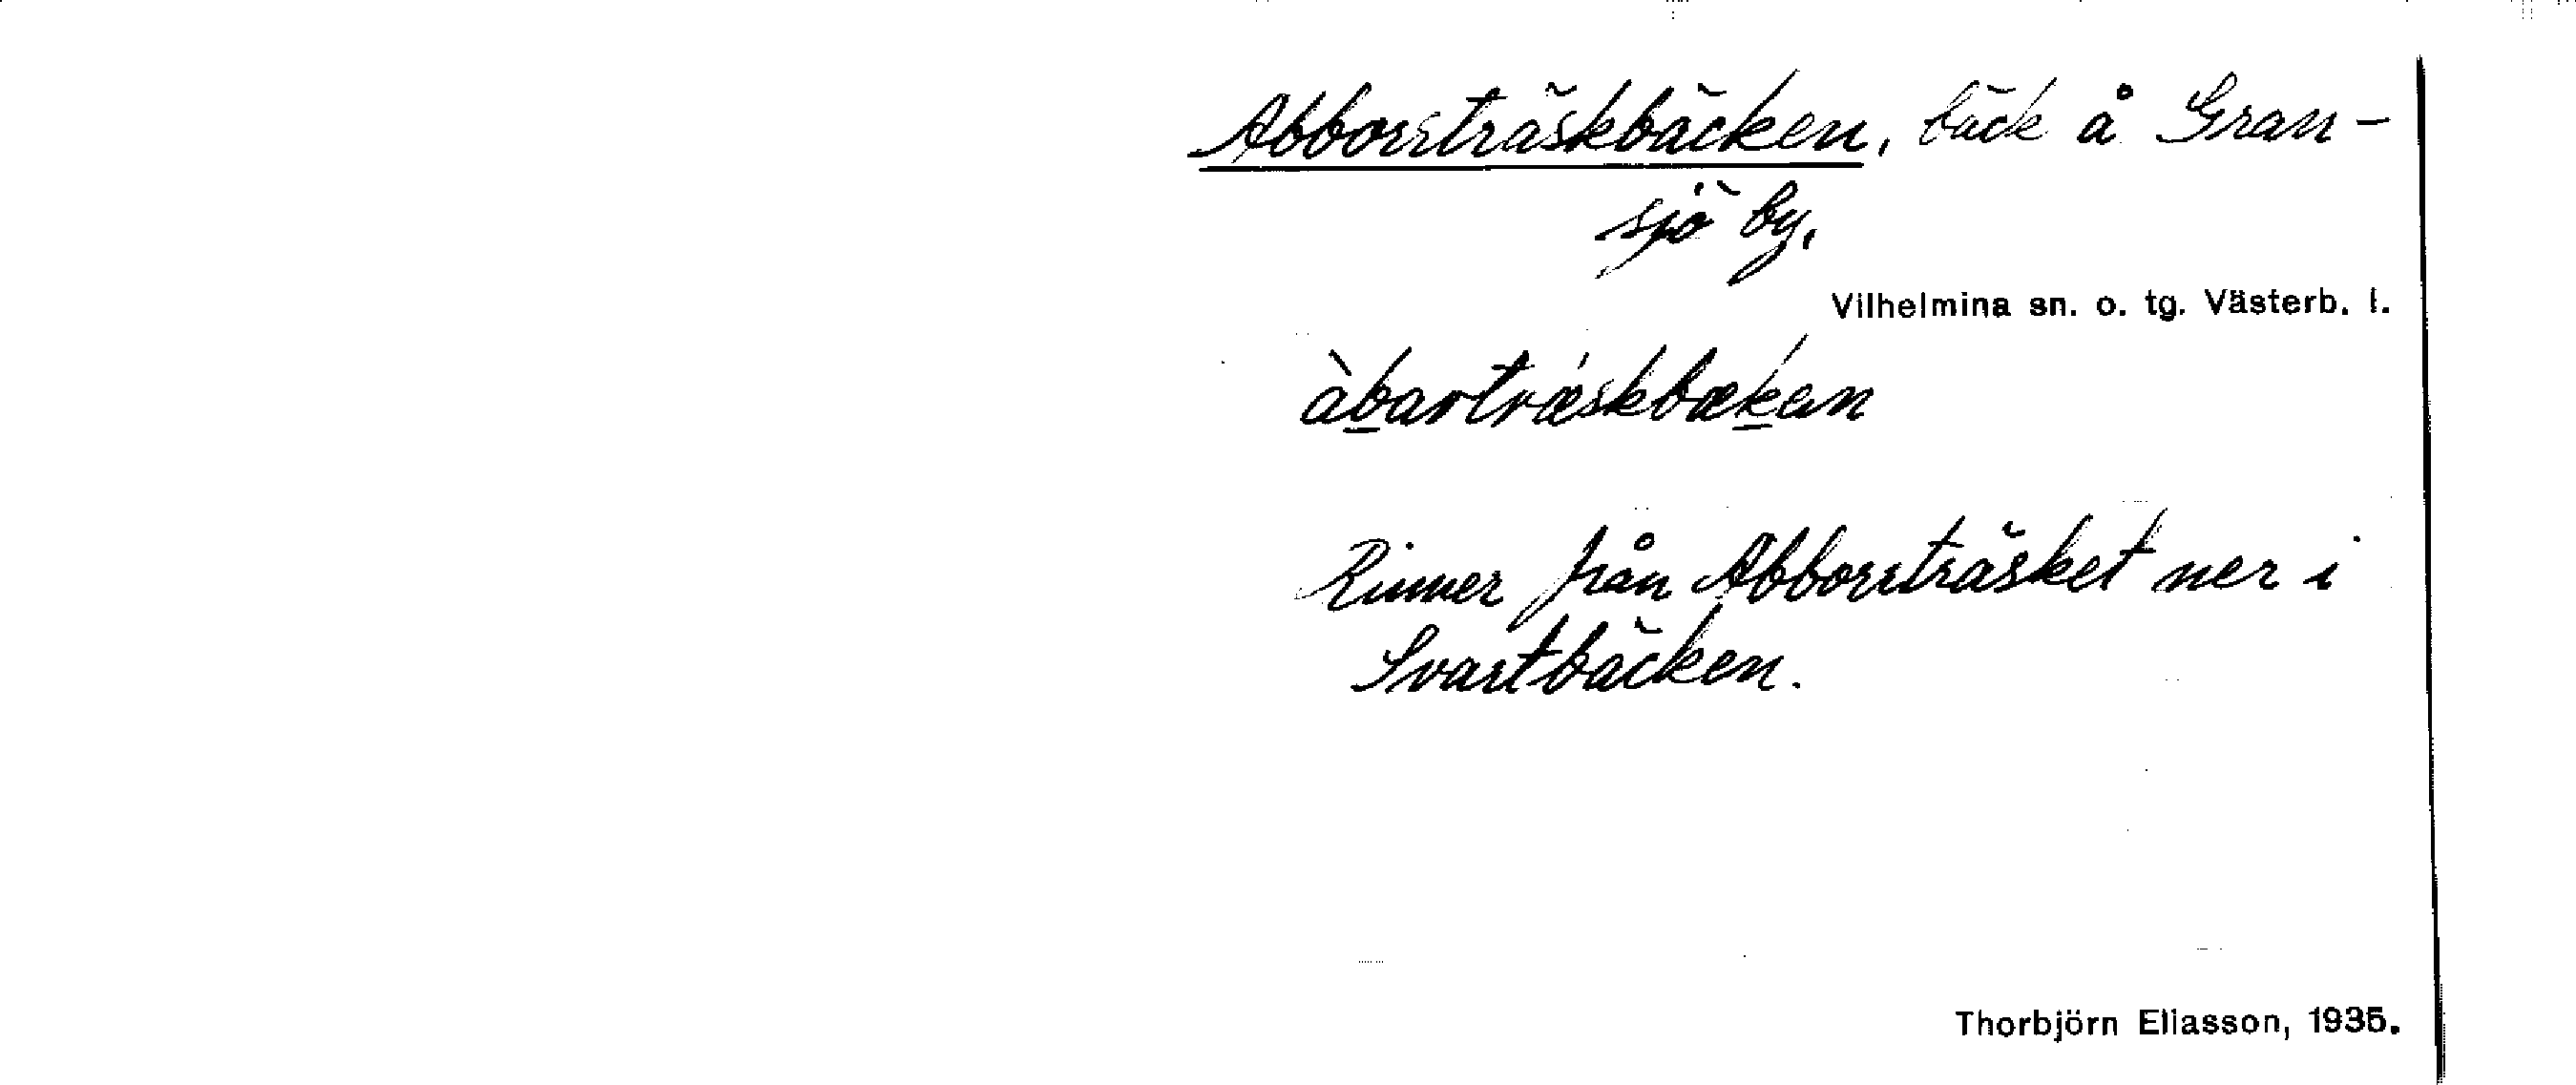 Abborrträskbäcken, bäck å Gran-
sjö by.
Vilhelmina sn. o. tg. Västerb. l.
àbartræ´skbækan
Rinner från Abborrträsket ner i
Svartbäcken.
Thorbjörn Eliasson, 1935.